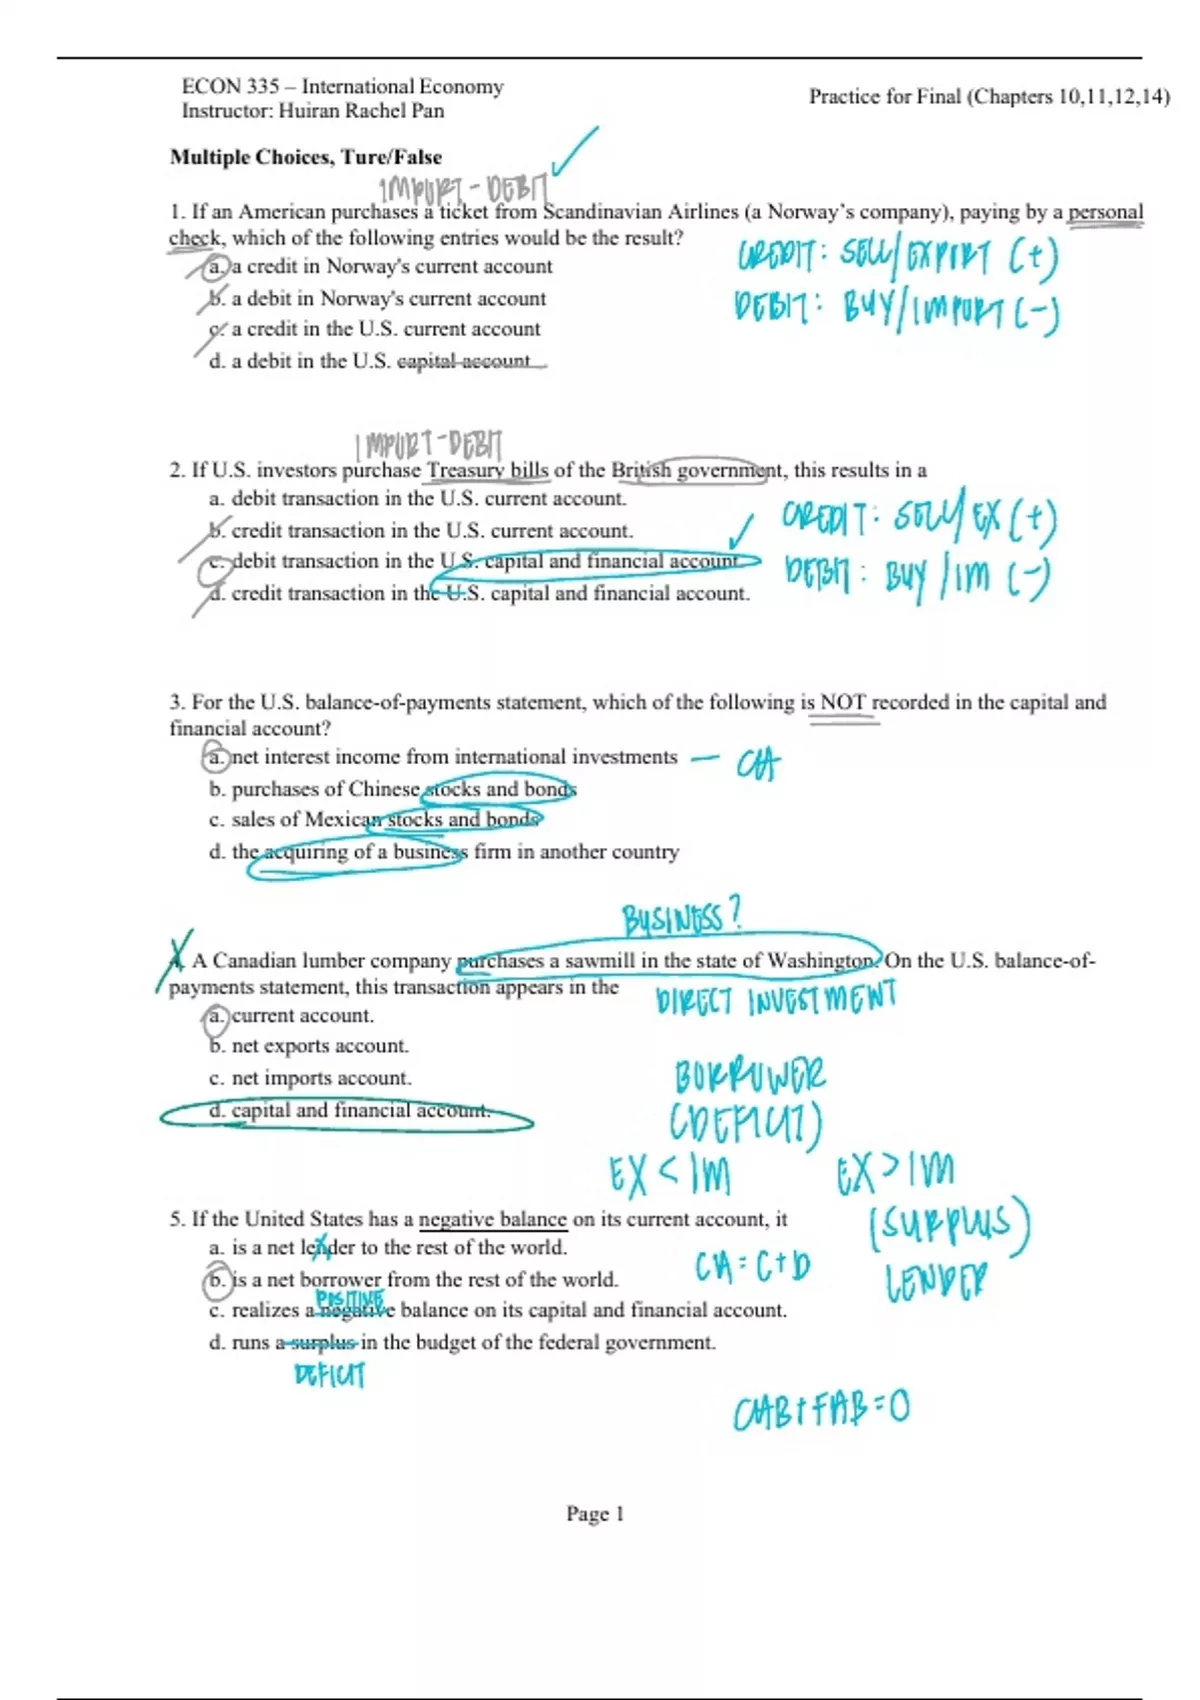 ECON 335 – International Economy
Instructor: Huiran Rachel Pan
Practice for Final (Chapters 10,11,12,14)
Multiple Choices, Ture/False
IMPORT - DEBIT
1. If an American purchases a ticket from Scandinavian Airlines (a Norway's company), paying by a personal
check, which of the following entries would be the result?
a. a credit in Norway's current account
b. a debit in Norway's current account
c. a credit in the U.S. current account
d. a debit in the U.S. capital account
CREDIT: SELL/EXPORT (+)
DEBIT: BUY/IMPORT (-)
IMPORT-DEBIT
2. If U.S. investors purchase Treasury bills of the British government, this results in a
a. debit transaction in the U.S. current account.
b. credit transaction in the U.S. current account.
c. debit transaction in the U.S. capital and financial account.
d. credit transaction in the U.S. capital and financial account.
CREDIT: SELL/EX (+)
DEBIT: BUY/IM (-)
3. For the U.S. balance-of-payments statement, which of the following is NOT recorded in the capital and
financial account?
a. net interest income from international investments — CA
b. purchases of Chinese stocks and bonds
c. sales of Mexican stocks and bonds
d. the acquiring of a business firm in another country
BUSINESS?
4. A Canadian lumber company purchases a sawmill in the state of Washington. On the U.S. balance-of-
payments statement, this transaction appears in the
DIRECT INVESTMENT
a. current account.
b. net exports account.
c. net imports account.
d. capital and financial account.
BORROWER
(DEFICIT)
EX < IM
EX > IM
(SURPLUS)
LENDER
5. If the United States has a negative balance on its current account, it
a. is a net lender to the rest of the world.
CA = C+D
b. is a net borrower from the rest of the world.
POSITIVE
c. realizes a negative balance on its capital and financial account.
d. runs a surplus in the budget of the federal government.
DEFICIT
CAB+FAB=0
Page 1